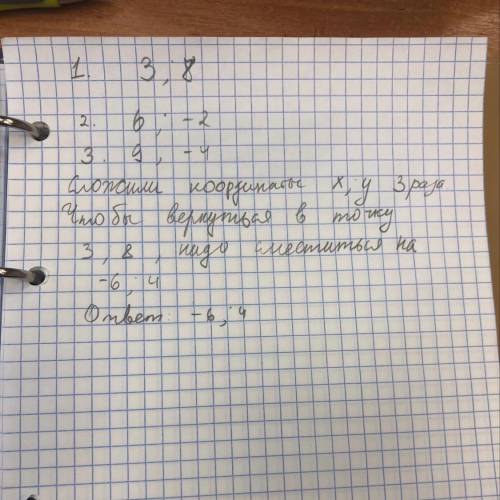 1. 3; 8
2. 6; -2
3. 9; -4
Сложили координаты x, y 3 раза
Чтобы вернуться в точку
3, 8, надо сместиться на
-6; 4
Ответ: -6; 4